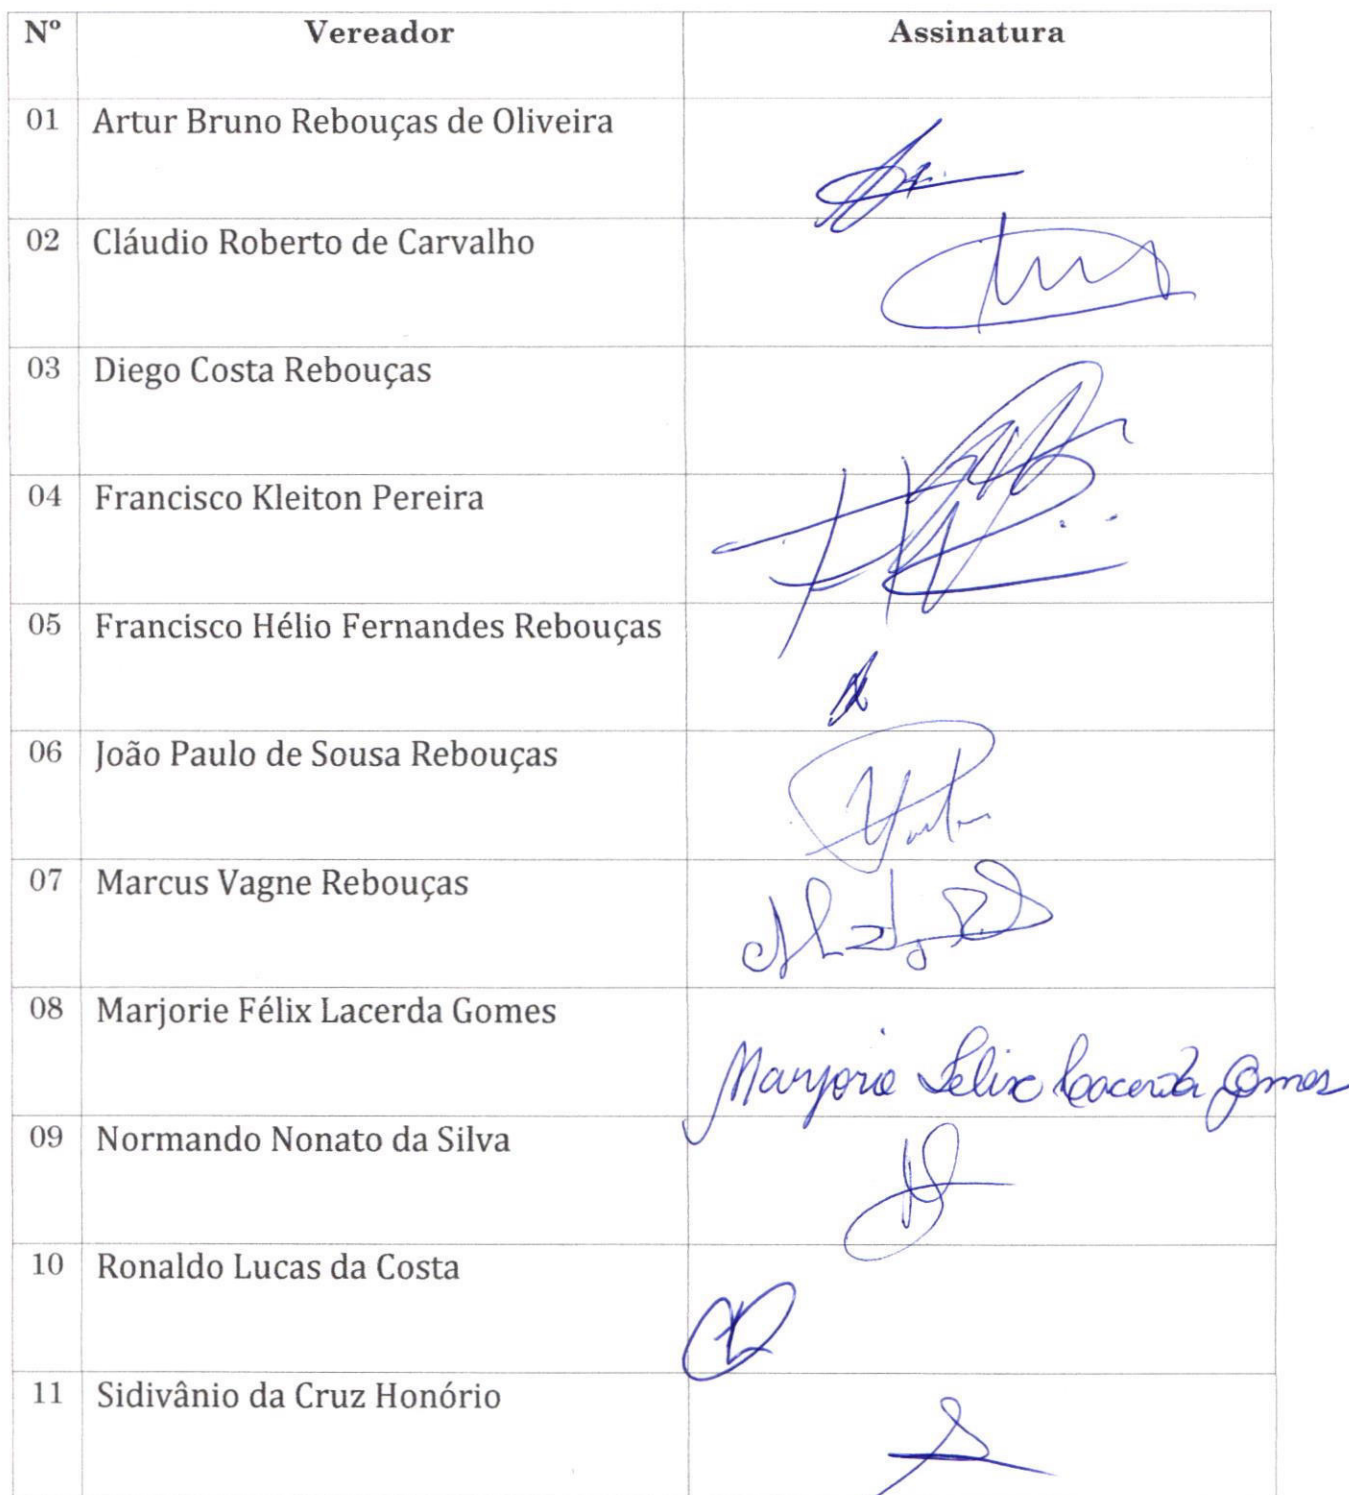 Nº Vereador Assinatura
01 Artur Bruno Rebouças de Oliveira
02 Cláudio Roberto de Carvalho
03 Diego Costa Rebouças
04 Francisco Kleiton Pereira
05 Francisco Hélio Fernandes Rebouças
06 João Paulo de Sousa Rebouças
07 Marcus Vagne Rebouças
08 Marjorie Félix Lacerda Gomes
Marjorie Felix Lacerda Gomes
09 Normando Nonato da Silva
10 Ronaldo Lucas da Costa
11 Sidivânio da Cruz Honório